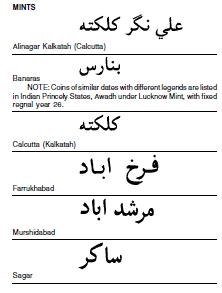 MINTS
علي نگر کلکته
Alinagar Kalkatah (Calcutta)
بنارس
Banaras
NOTE: Coins of similar dates with different legends are listed
in Indian Princely States, Awadh under Lucknow Mint, with fixed
regnal year 26.
کلکته
Calcutta (Kalkatah)
فرخ اباد
Farrukhabad
مرشد اباد
Murshidabad
ساکر
Sagar